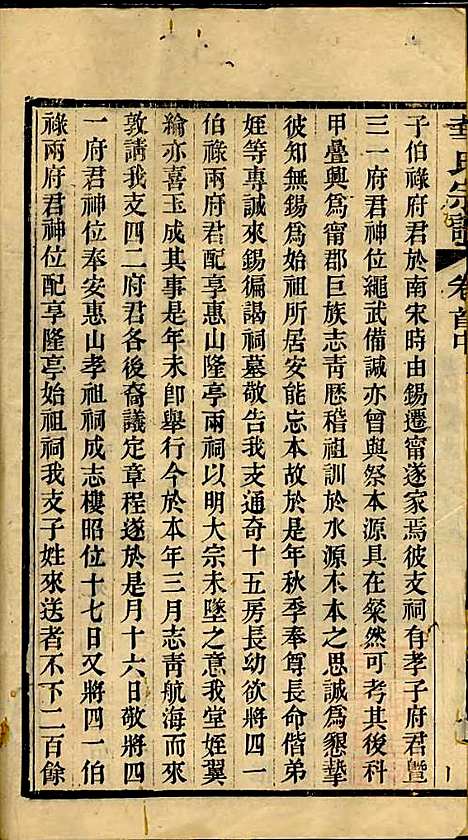 華氏宗譜 卷首中
子伯祿府君於南宋時由錫遷甯遂家焉彼支祠有孝子府君暨
三一府君神位繩武備諴亦曾與祭本源具在粲然可考其後科
甲疊興為甯郡巨族志青歷稽祖訓於水源木本之思誠為懇摯
彼知無錫為始祖所居安能忘本故於是年秋季奉尊長命偕弟
姪等專誠來錫徧謁祠墓敬告我支通奇十五房長幼欲將四一
伯祿兩府君配享惠山隆亭兩祠以明大宗未墜之意我堂姪翼
綸亦喜玉成其事是年未卽舉行今於本年三月志青航海而來
敦請我支四二府君各後裔議定章程遂於是月十六日敬將四
一府君神位奉安惠山孝祖祠成志樓昭位十七日又將四一伯
祿兩府君神位配享隆亭始祖祠我支子姓來送者不下二百餘